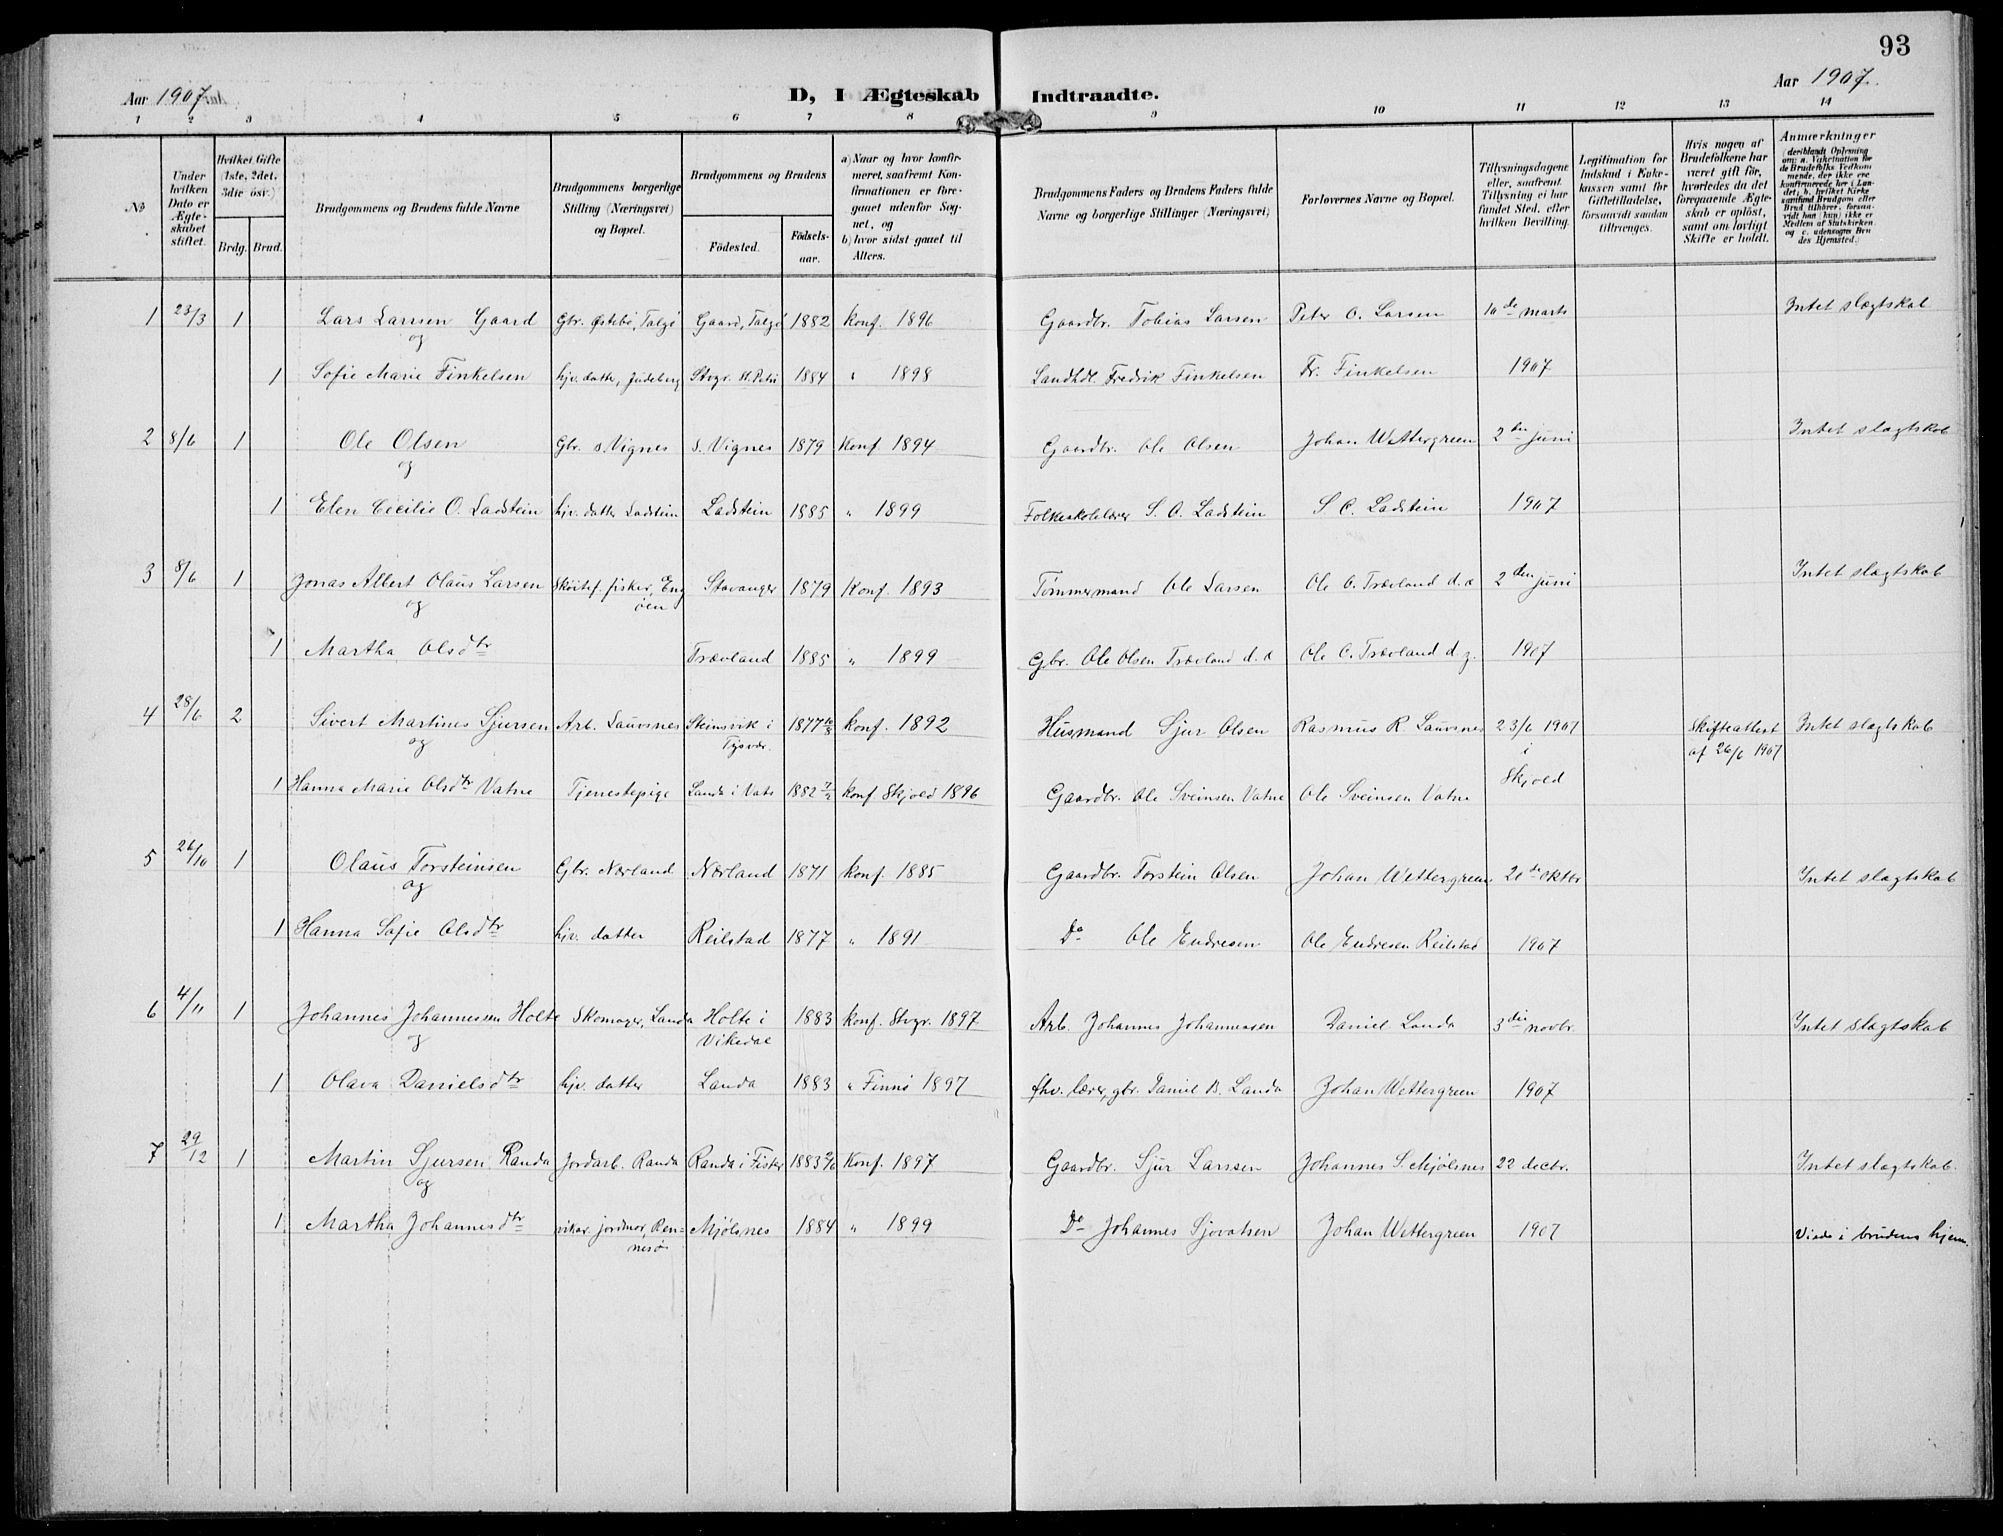 93
Aar 1907. D, I Ægteskab Indtraadte. Aar 1907.
1 2 3 4 5 6 7 8 9 10 11 12 13 14
No
Under hvilken Dato er Ægteskabet stiftet.
Hvilket Gifte (1ste, 2det, 3die osv.)
Brdg. Brud.
Brudgommens og Brudens fulde Navne
Brudgommens borgerlige Stilling (Næringsvei) og Bopæl.
Brudgommens og Brudens
Födested. Födsels-aar.
a) Naar og hvor konfirmeret, saafremt Konfirmationen er foregaaet udenfor Sognet, og
b) hvor sidst gaaet til Alters.
Brudgommens Faders og Brudens Faders fulde Navne og borgerlige Stillinger (Næringsvei)
Forlovernes Navne og Bopæl.
Tillysningsdagene eller, saafremt Tillysning ei har fundet Sted, efter hvilken Bevilling.
Legitimation for Indskud i Enkekassen samt for Giftetilladelse, forsaavidt saadan tiltrænges.
Hvis nogen af Brudefolkene har været gift för, hvorledes da det foregaaende Ægteskab er oplöst, samt om lovligt Skifte er holdt.
Anmærkninger (deriblandt Oplysning om: a. Vakcination for de Brudefolks Vedkommende, der ikke ere konfirmerede her i Landet; b. hvilket Kirkesamfund Brudgom eller Brud tilhörer, forsaavidt han (hun) ikke er Medlem af Statskirken og c. udensogns Brudes Hjemsted.)
1 23/3 1 Lars Larsen Gaard Gbr. Østebö, Talgö Gaard, Talgö 1882 konf. 1896 Gaardbr. Tobias Larsen Peter O. Larsen 10de marts Intet slægtskab
og
1 Sofie Marie Finkelsen hjv. datter, Judeberg Stvgr. St. Petri 1884 " 1898 Landhdl. Fredrik Finkelsen Fr. Finkelsen 1907
2 8/6 1 Ole Olsen Gbr. s. Vignes s. Vignes 1879 Konf. 1894 Gaardbr. Ole Olsen Johan Wettergreen 2den juni Intet slægtskab
og
1 Elen Cecilie O. Ladstein hjv. datter Ladstein Ladstein 1885 " 1899 Folkeskolelærer S. O. Ladstein S. O. Ladstein 1907
3 8/6 1 Jonas Albert Olaus Larsen Sköitef. fisker, Eng Stavanger 1879 Konf. 1893 Tømmermand Ole Larsen Ole O. Trævland d. æ 2den juni Intet slægtskab
og öen
1 Martha Olsdtr Trævland 1885 " 1899 Gbr. Ole Olsen Trævland d. æ Ole O. Trævland d. y. 1907
4 28/6 2 Sivert Martines Sjursen Arb. Lauvsnes Steinsvik i 1877 konf. 1892 Husmand Sjur Olsen Rasmus R. Lauvsnes 23/6 1907 Skifteattest Intet slægtskab
og Tysvær. i af 26/6 1907
1 Hanna Marie Olsdtr Vatne Tjenestepige Landa i Vats 1882 7/2 konf. Skjold 1896 Gaardbr. Ole Sveinsen Vatne Ole Sveinsen Vatne Skjold
5 26/10 1 Olaus Torsteinsen Gbr. Nærland Nærland 1871 konf. 1885 Gaardbr. Torstein Olsen Johan Wettergreen 20de oktbr Intet slægtskab
og
1 Hanna Sofie Olsdtr hjv. datter Reilstad 1877 " 1891 Do Ole Endresen Ole Endresen Reilstad 1907
6 4/11 1 Johannes Johannessen Holte Skomager, Landa Holte i 1883 konf. Stvgr. 1897 Arb. Johannes Johannessen Daniel Landa 3die novbr. Intet slægtskab
og Vikedal
1 Olava Danielsdtr hjv. datter Landa 1883 " Finnö 1897 fhv. lærer, gbr. Daniel B. Landa Johan Wettergreen 1907
7 29/12 1 Martin Sjursen Randa Jordarb. Randa Randa i Fister 1883 Konf. 1897 Gaardbr. Sjur Larssen Johannes S. Mjølsnes 22 decbr. Intet slægtskab.
og
1 Martha Johannesdtr vikar. jordmor, Ren- Mjølsnes 1884 " 1899 Do Johannes Sjovatsen Johan Wettergreen 1907 Viede i brudens hjem.
nesö